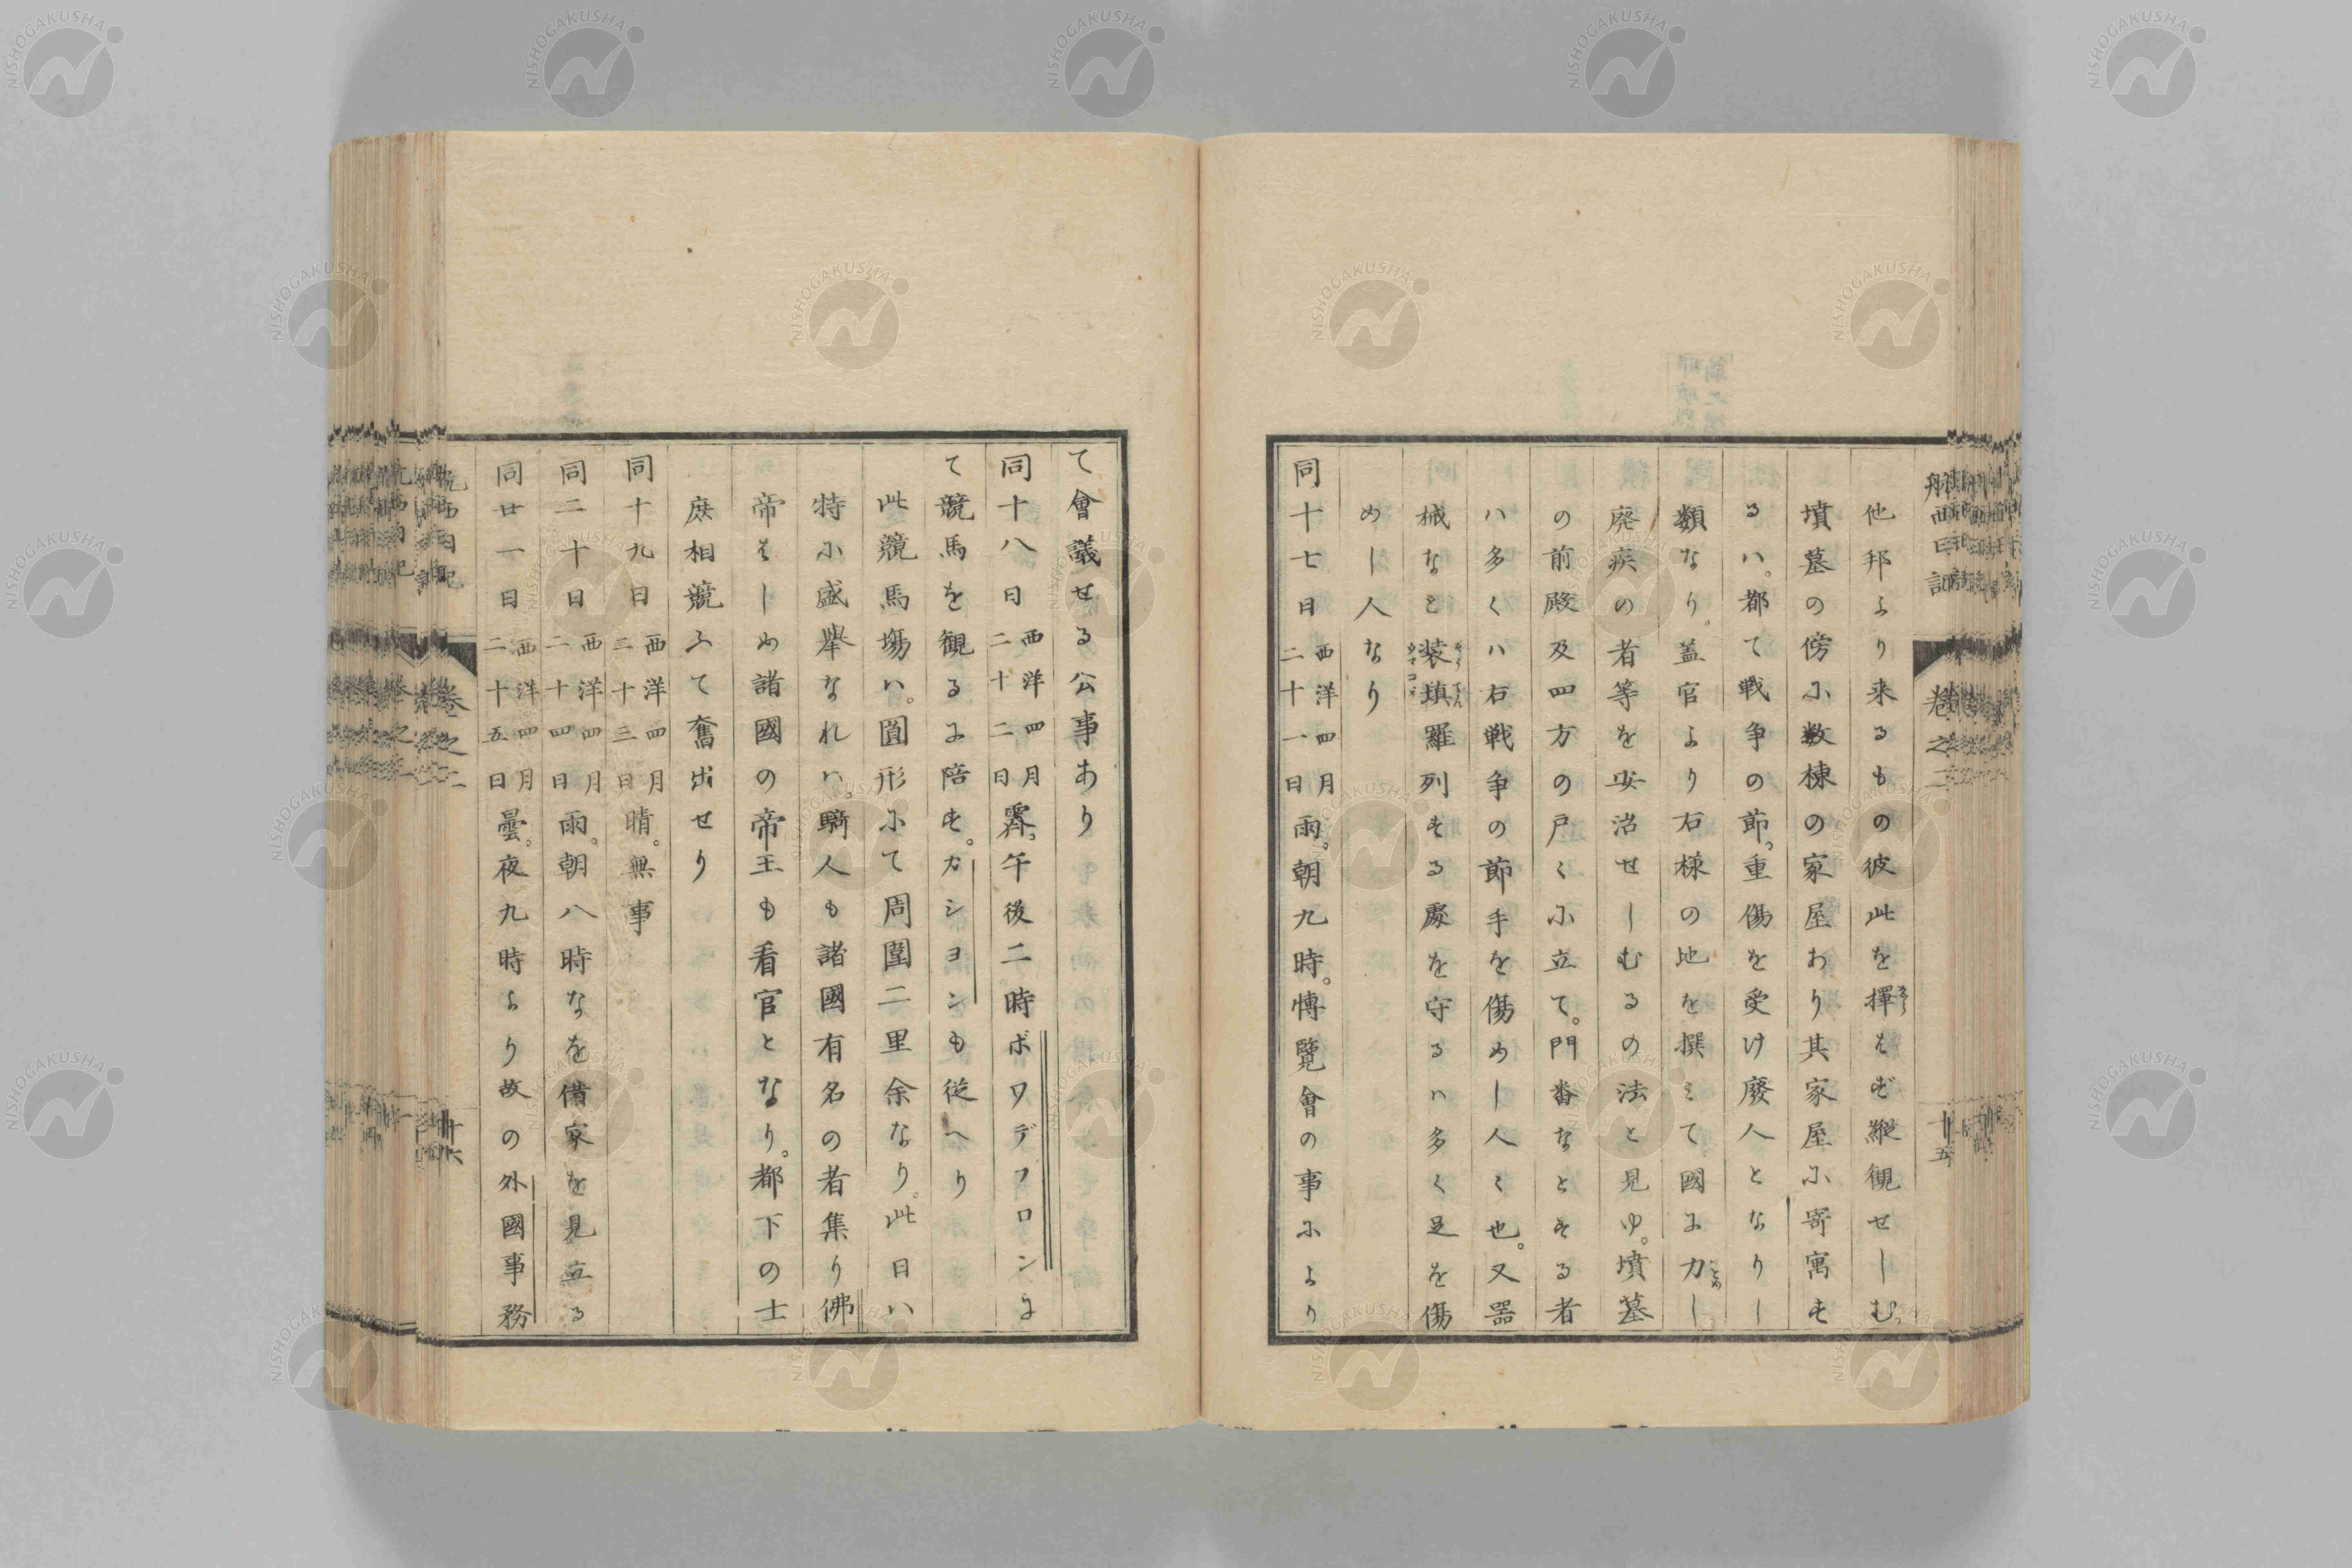 航西日記 卷之二 十五
他邦より来るもの彼此を擇はず縦觀せしむ。
墳墓の傍に数棟の家屋あり其家屋に寄寓す
るハ。都て戦争の節。重傷を受け廢人となりし
類なり。蓋官より右様の地を撰ミて。國に力し
廃疾の者等を安治せしむるの法と見ゆ。墳墓
の前殿及四方の戸〱に立て。門番なとする者
ハ多くハ右戦争の節手を傷めし人〻也。又器
械など装填羅列する處を守るハ多く足を傷
めし人なり
同十七日 西洋四月二十一日 雨。朝九時。博覽會の事により
て會議せる公事あり
同十八日 西洋四月二十二日 霽。午後二時ボワデフロンに
て競馬を観るに陪す。カションも従へり
此競馬場ハ。圓形にて周圍二里余なり。此日ハ
特に盛擧なれハ。騎人も諸國有名の者集り佛
帝をしめ諸國の帝王も看官となり。都下の士
庶相競ふて奮出せり
同十九日 西洋四月二十三日 晴。無事
同二十日 西洋四月二十四日 雨。朝八時なを借家を見立る
同廿一日 西洋四月二十五日 曇。夜九時より故の外國事務
航西日記 卷之二 十六
NISHOGAKUSHA